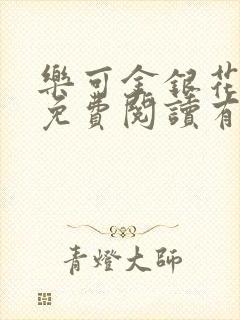 樂可金銀花
免費閱讀有
青燈大師